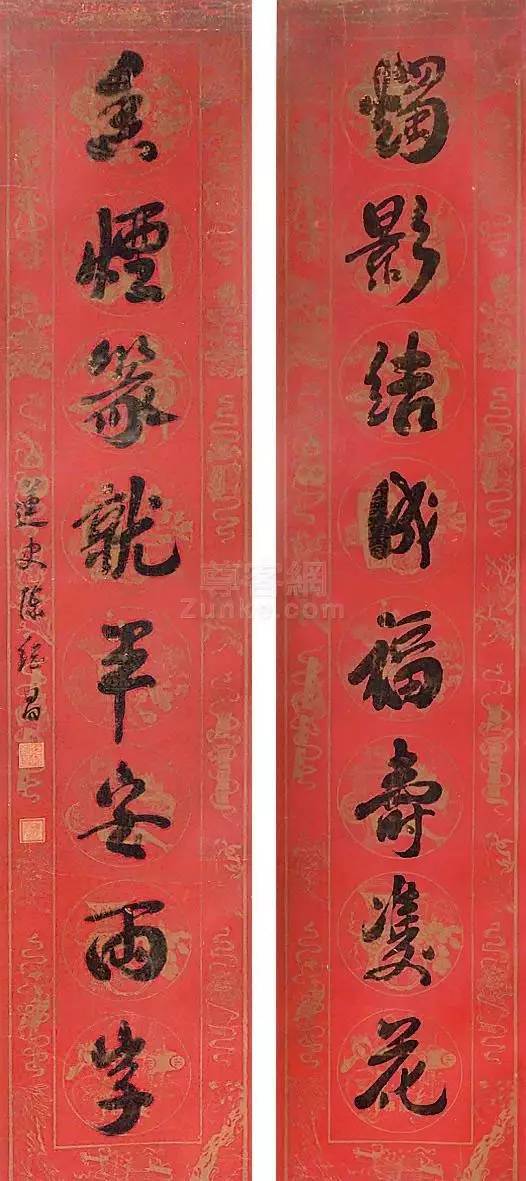 燭影結成福壽雙花
香煙篆就平安兩字
蓮史陳繼昌
尊客網
Zunke.com